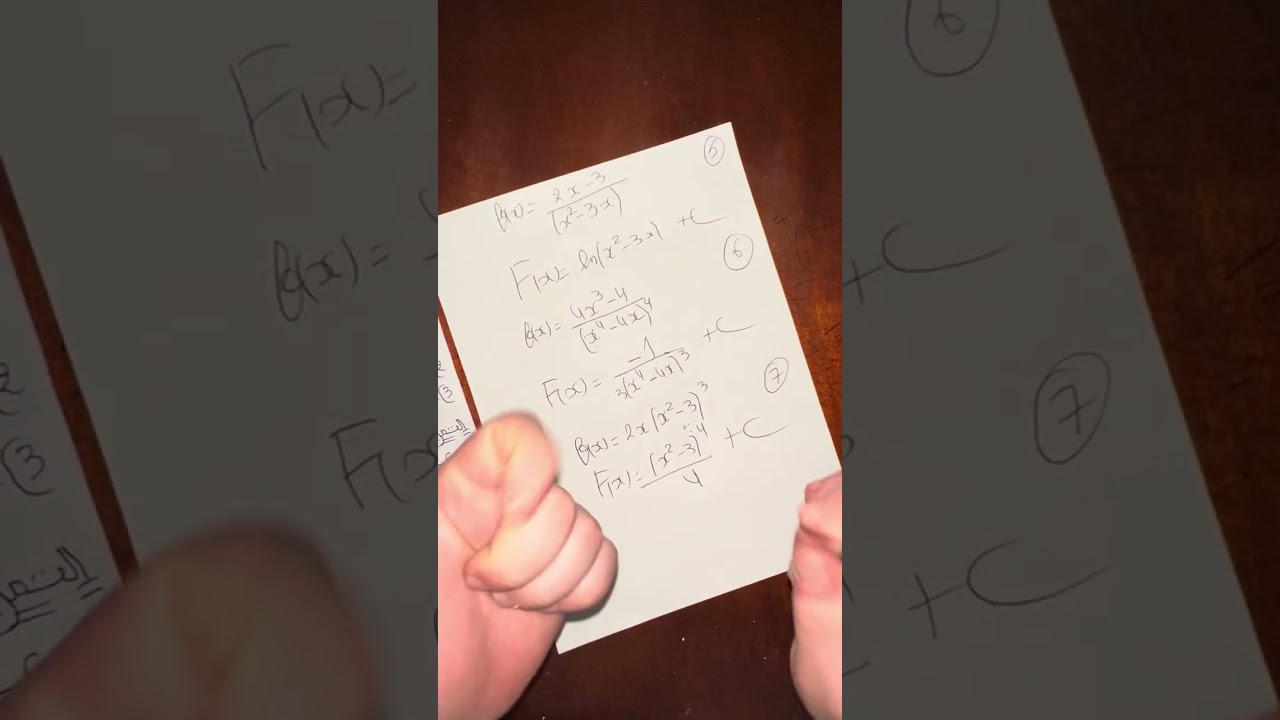 5
f(x) = 2x-3 / (x²-3x)
F(x) = ln(x²-3x) + C
6
f(x) = 4x³-4 / (x⁴-4x)⁴
F(x) = -1 / 3(x⁴-4x)³ + C
7
f(x) = 2x(x²-3)³
F(x) = (x²-3)⁴ / 4 + C